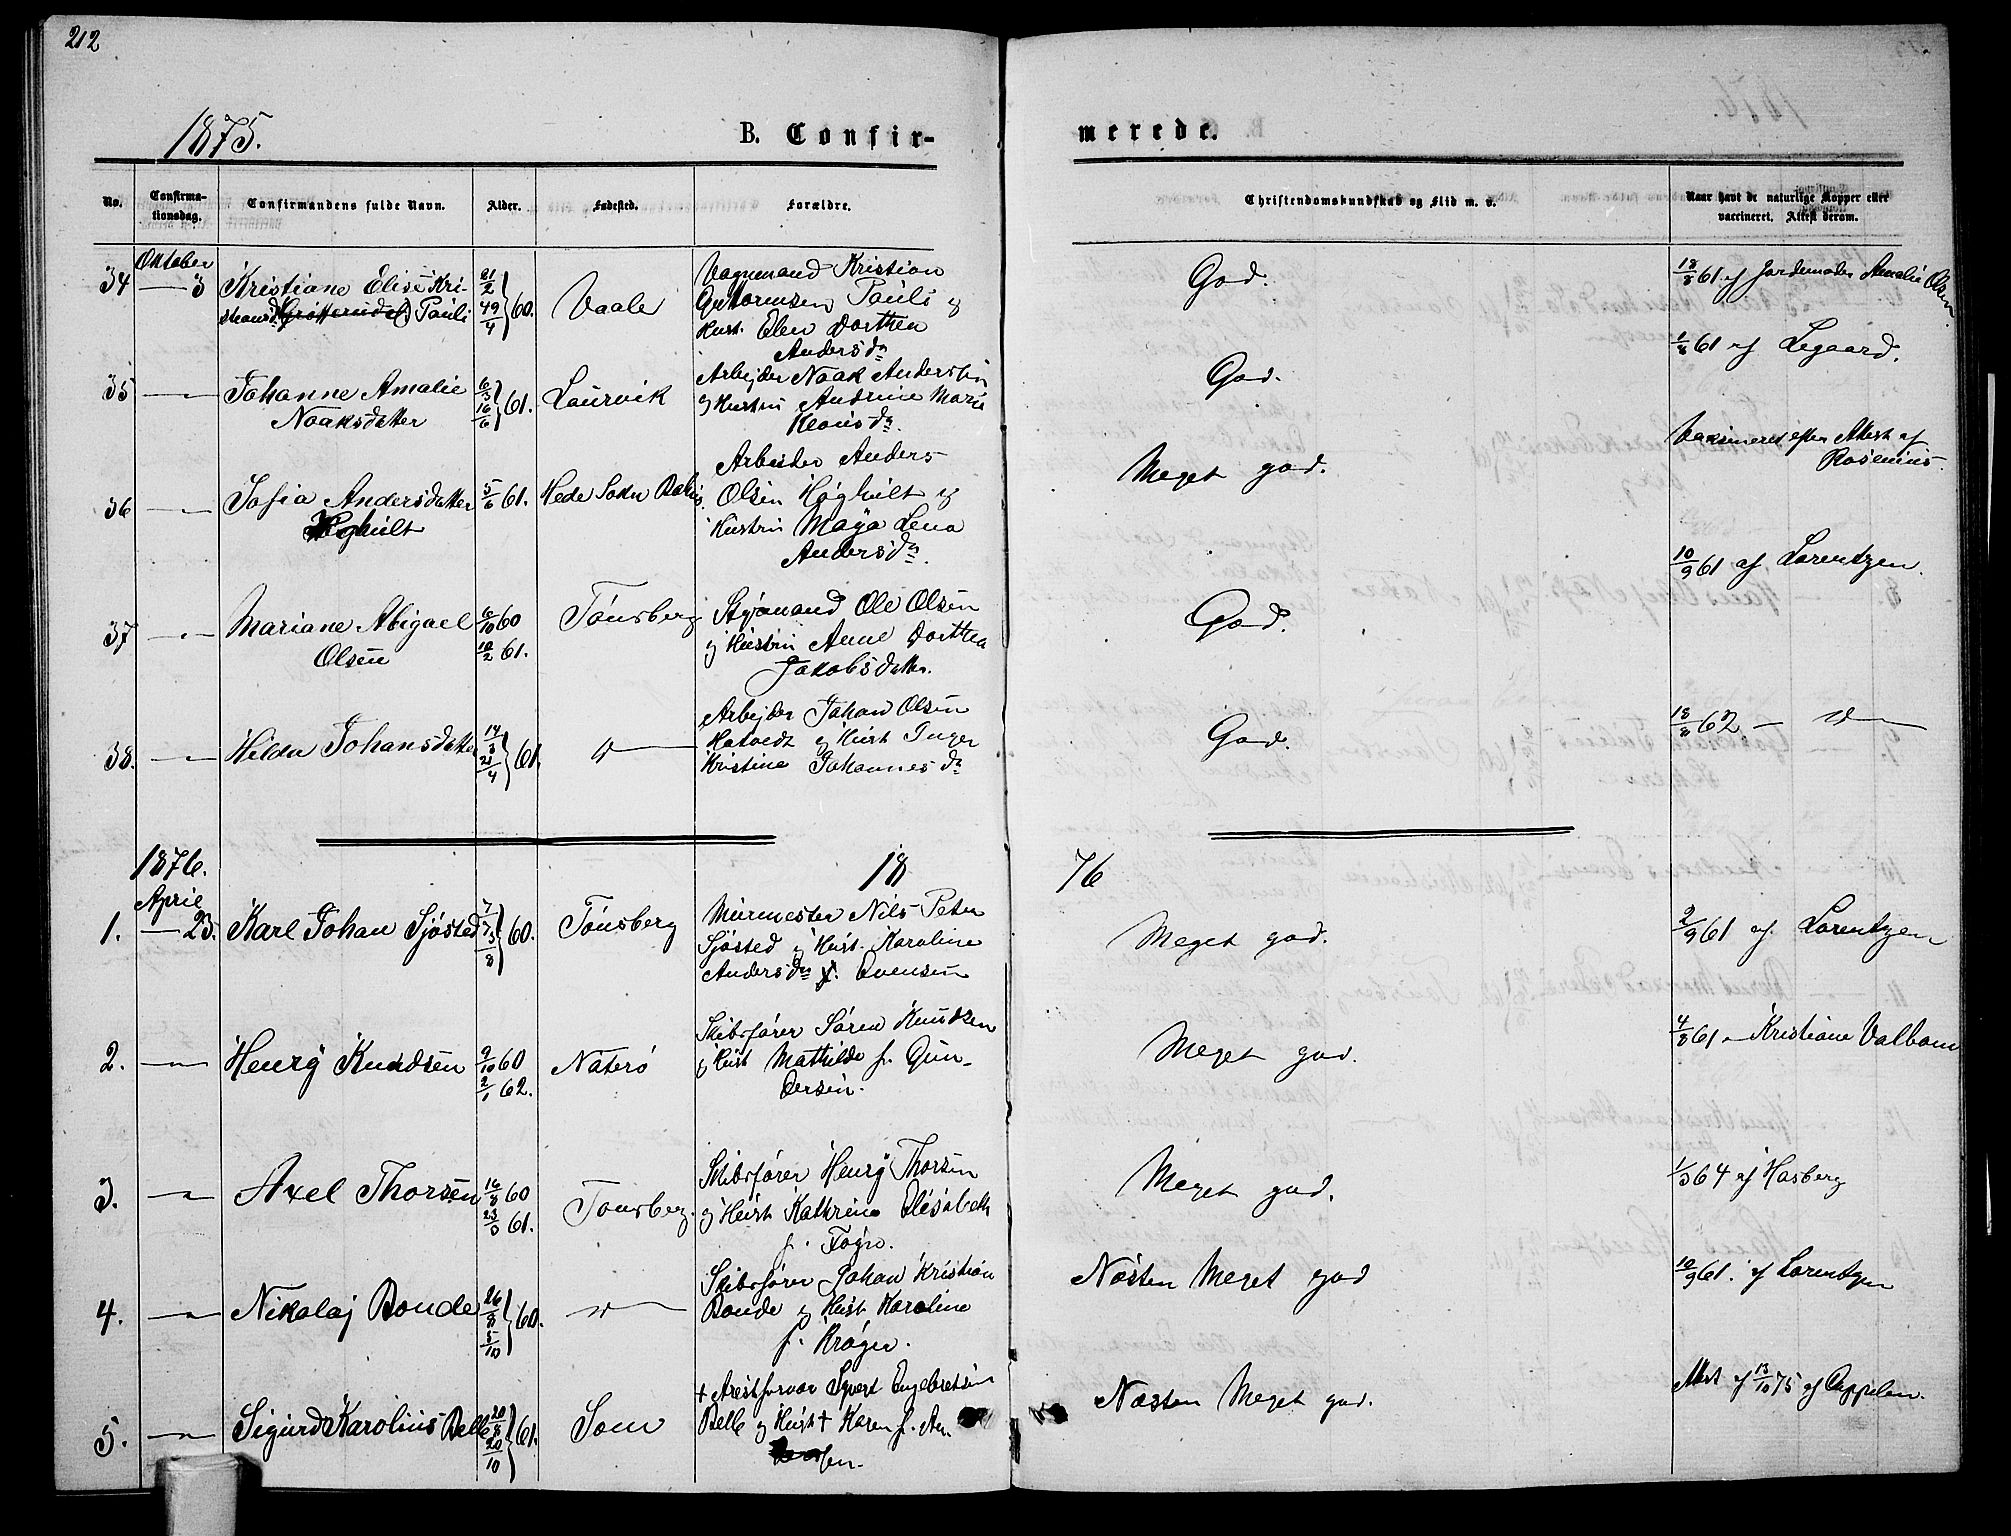 212
1875.
B. Confir-
merede.
No.
Confirma-
tionsdag.
Confirmandens fulde Navn.
Alder.
Fødested.
Forældre.
Christendomskundskab og Flid m. v.
Naar havt de naturlige Kopper eller
vaccineret. Attest derom.
Oktober
34 — 3 Kristiane Elise Kri-
stiansd. Pauli
21/2 49/4 60. Vaale
Vognmand Kristian
Guttormsen Pauli og
Hust. Elen Dorthea
Andersdr
God.
18/8 61 af Jordemoder Amalie Olsen
35 — Johanne Amalie
Noaksdatter
6/3 16/6 61. Laurvik
Arbejder Noak Andersen
og Hustru Andrine Marie
Klausdr.
God.
1/8 61 af Legaard.
36 — Sofia Andersdatter
Høghült
5/6 61. Hede Sokn Bohus.
Arbeider Anders
Olsen Høghült og
Hustru Maja Lena
Andersdr.
Meget god.
Vaksineret efter Attest af
Rosenius.
37 — Mariane Abigael
Olsen
6/10 60
10/2 61.
Tønsberg
Styrmand Ole Olsen
og Hustru Anne Dorthea
Jakobsdatter.
God.
10/9 61 af Lorentzen.
38. — Hilda Johansdatter
14/3 21/4 61. —
Arbejder Johan Olsen
Hatvedt og Hust. Inger
Kristine Johannesdr
God.
18/8 62 —
1876.
1876
April
1. — 23. Karl Johan Sjøsted
7/7 5/8 60. Tønsberg
Murmester Nils Peter
Sjøsted og Hust. Karoline
Andersdr f. Evensen
Meget god.
2/9 61 af Lorentzen
2. — Henry Knudsen
9/10 60
2/1 62.
Nøterø
Skibsfører Søren Knudsen
og Hust Mathilde f. Gun-
dersen.
Meget god.
4/8 61 — Kristiane Valbom
3. — Axel Thorsen
16/8 60
23/3 61.
Tønsberg.
Skibsfører Henry Thorsen
og Hust Kathrine Elisabeth
f. Føyn.
Meget god.
1/3 64 af Hasberg
4. — Nikolaj Bonde
26/8 5/10 60. —
Skibsfører Johan Kristian
Bonde og Hust Karoline
f. Krøger.
Næsten Meget god
10/9 61. af Lorentzen
5. — Sigurd Karolius Belle
20/8 20/10 61. Sem
+ Arestforvar Syvert Engebretsen
Belle og Hust + Karen f. An-
dersen.
Næsten Meget god.
Attest af 13/10 75 af Cappelen.